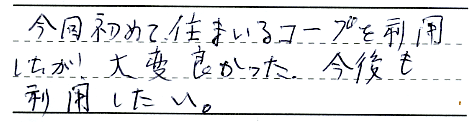 今回初めて住まいるコープを利用
したが、大変良かった。今後も
利用したい。